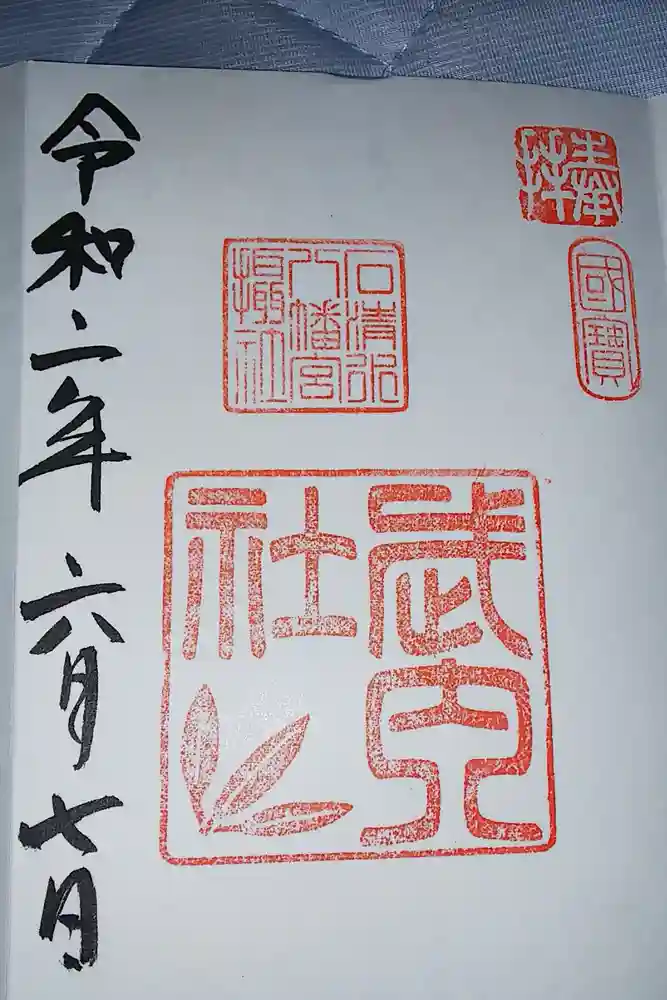 奉拝
國寶
石清水
八幡宮
摂社
武内
社
令和二年六月七日